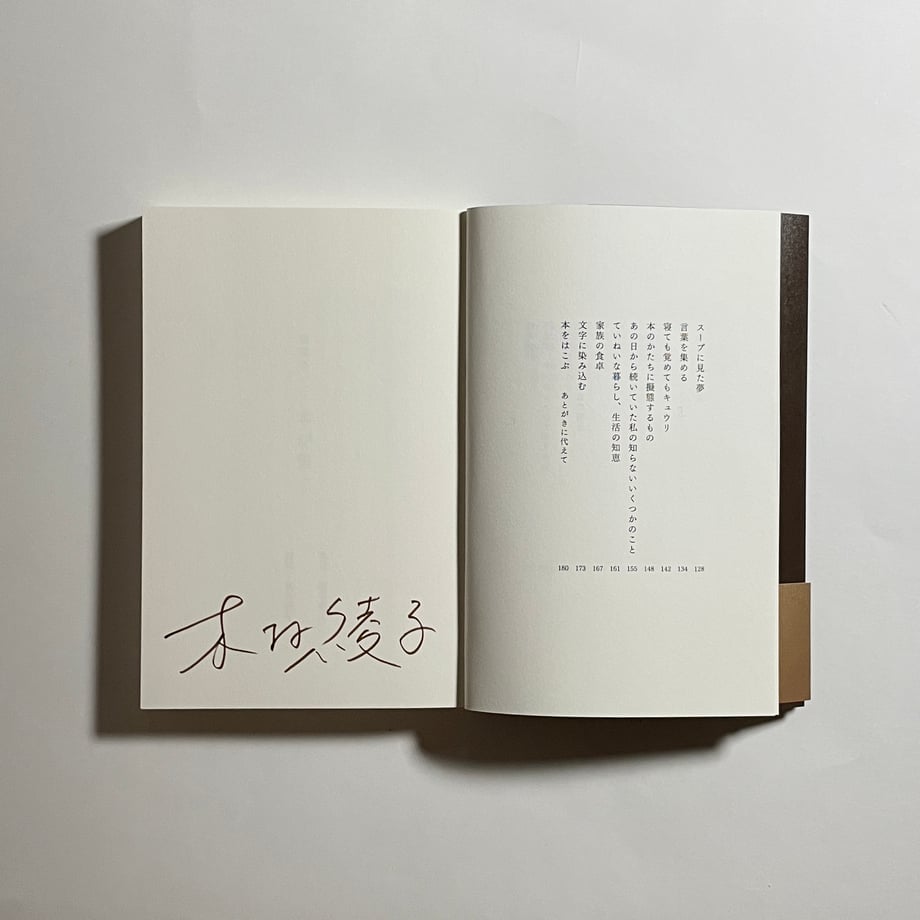 スープに見た夢 128
言葉を集める 134
寝ても覚めてもキュウリ 142
本のかたちに擬態するもの 148
あの日から続いていた私の知らないいくつかのこと 155
ていねいな暮らし、生活の知恵 161
家族の食卓 167
文字に染み込む 173
本をはこぶ あとがきに代えて 180
木村綾子